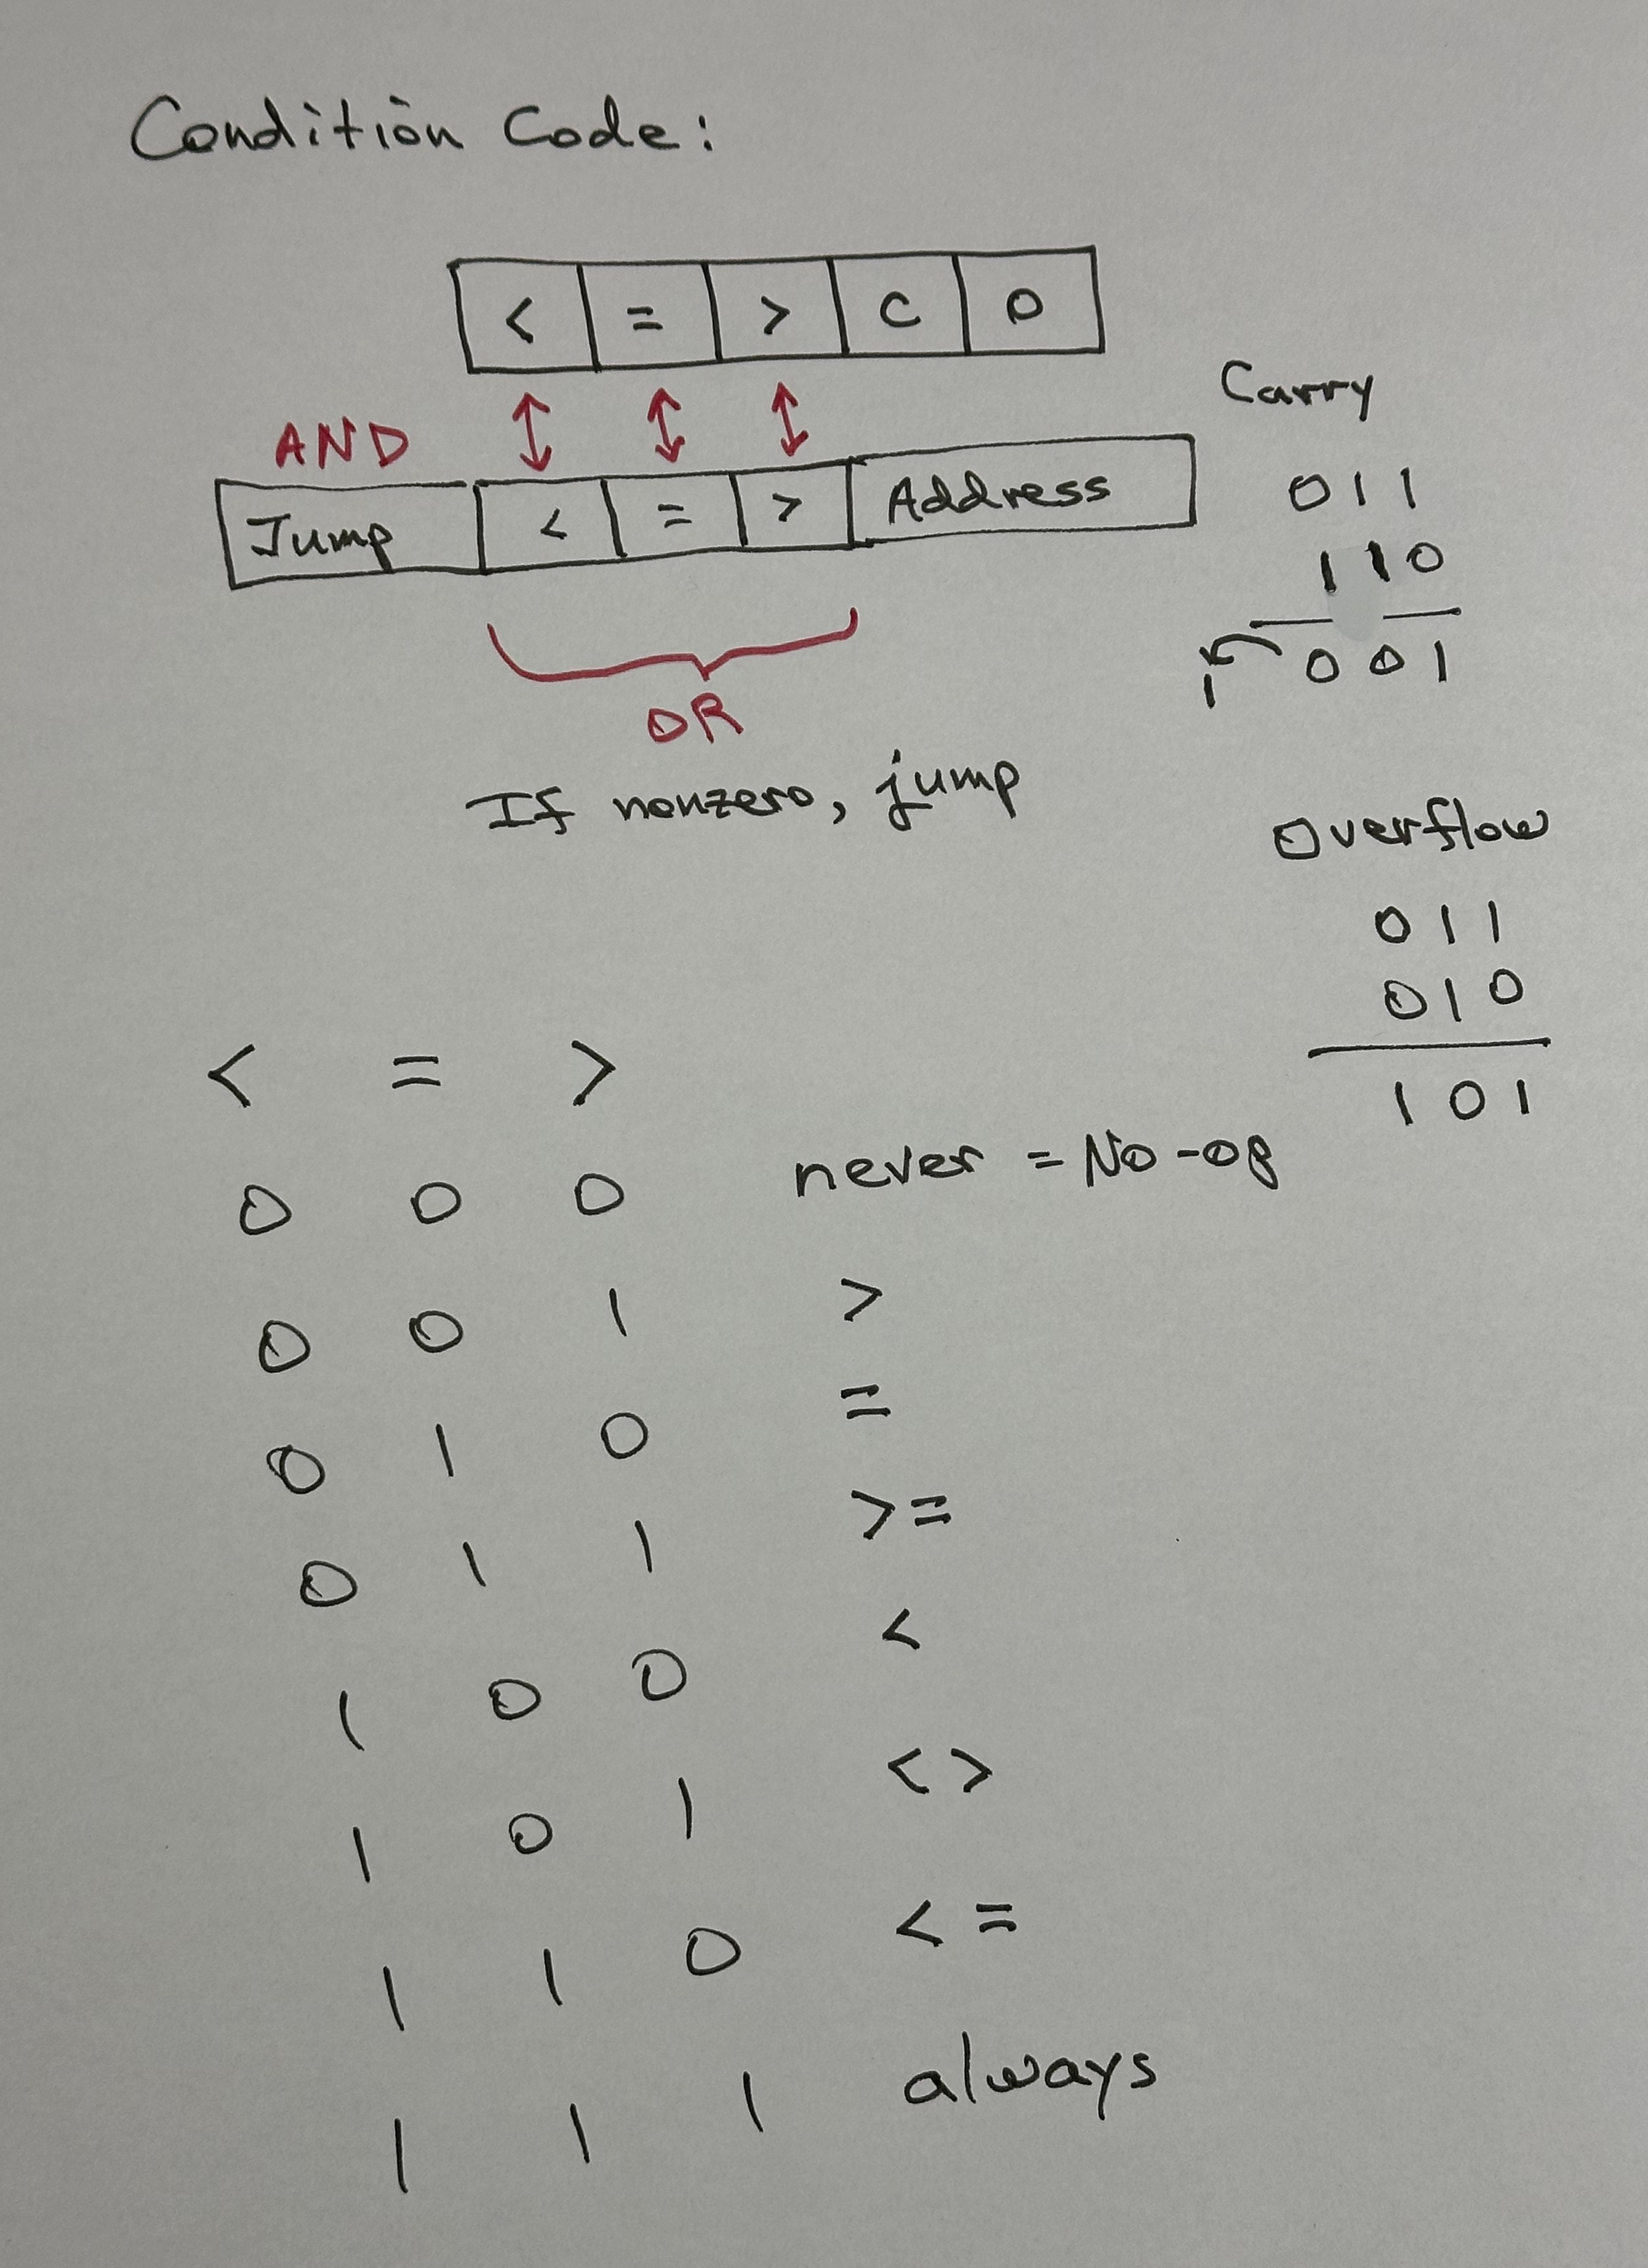 Condition Code:
< = > C O
AND
Jump < = > Address
OR
If nonzero, jump
Carry
011
110
1 001
Overflow
011
010
101
< = >
0 0 0 never = No-op
0 0 1 >
0 1 0 =
0 1 1 >=
1 0 0 <
1 0 1 <>
1 1 0 <=
1 1 1 always